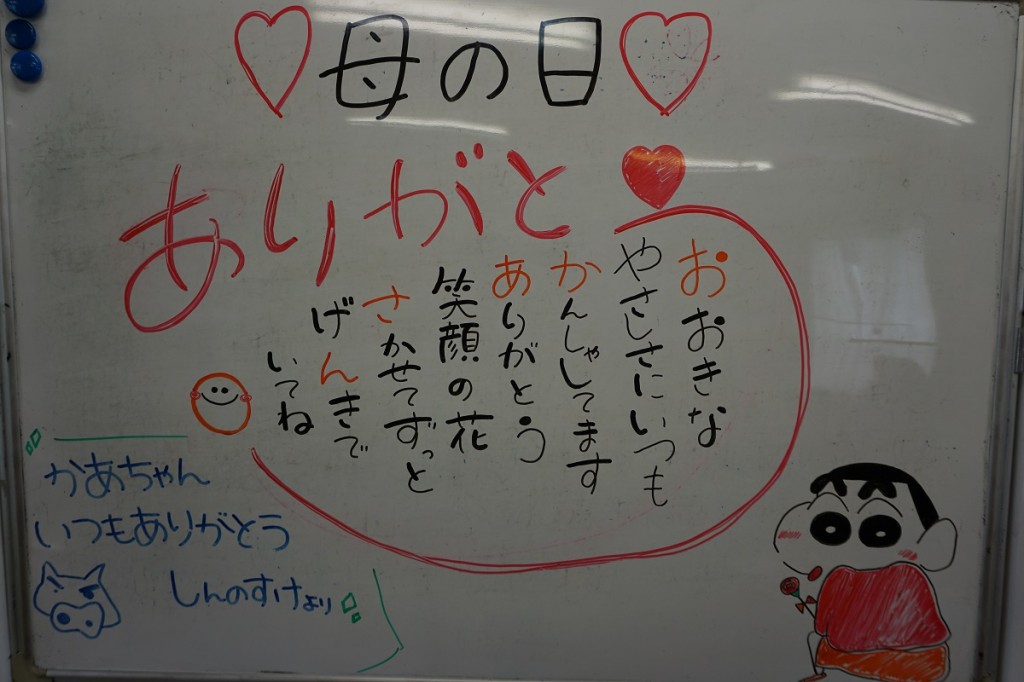 母の日
ありがとう
おおきな
やさしさにいつも
かんしゃしてます
ありがとう
笑顔の花
さかせてずっと
げんきで
いてね
かあちゃん
いつもありがとう
しんのすけより